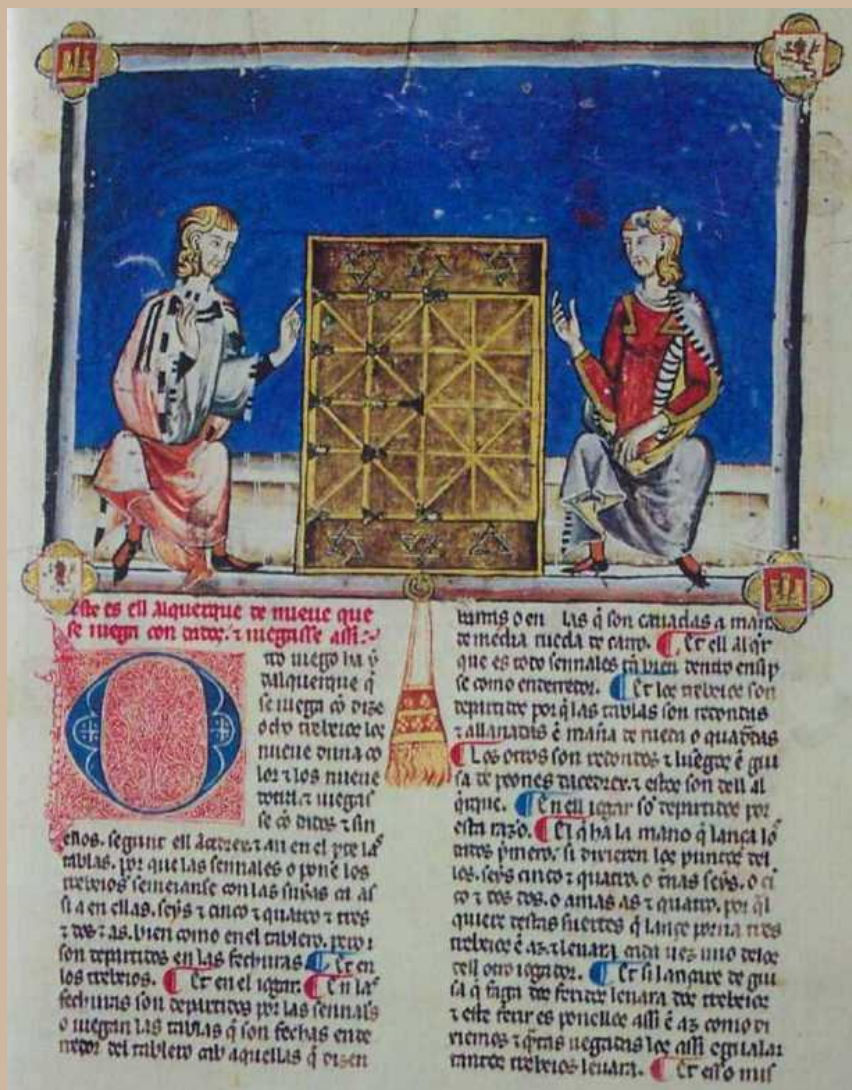 Este es ell alquerque de nueue que
se iuega con dados. ⁊ iuegasse assi.
Otro iuego ha y
dalquerque q̄
se iuega cō dize
ocho trebeios los
nueue duna co
lor ⁊ los nueue
dotra. ⁊ iuegas
se cō dados ⁊ sin
ellos. segunt ell acedrex. ⁊ an en el pte las
tablas. por que las sennales o ponē los
trebeios semeianse con las suyas ca as
si a en ellas. seys ⁊ cinco ⁊ quatro ⁊ tres
⁊ dos ⁊ as. bien como en el tablero. pero
son departidos en las fechuras. Et en
los trebeios. Et en el iogar. En las
fechuras son departidos por las sennales
o iuegan las tablas q̄ son fechas enderredor del tablero
o en las q̄ son cauadas a man
de media rueda de carro. Et ell alqr
que es todo sennales tā bien dentro
se como enderredor. Et los trebeios son
departidos por q̄ las tablas son redondas
⁊ allanadas ē maña de rueda o quadradas
Los otros son redondos ⁊ luegos ē gui
sa de peones dacedrex. ⁊ estos son dell al
qrque. En ell iogar so departidos por
esta razō. El q̄ ha la mano q̄ lança los
dados pmero. si dixieren los puntos del
los. seys cinco ⁊ quatro. o seys. o ci
co ⁊ dos dos. o amas as ⁊ quatro. por ql
quiere destas suertes q̄ lançe porna tres
trebeios ē az ⁊ leuara cada uez uno delos
dell otro iogador. Et si lançare de gui
sa q̄ faga dos feridas leuara dos trebeios
⁊ este ferir es ponellos assi ē az como di
xiemos ⁊ qtas uegadas los assi egualar
tantos trebeios leuara. Et esso mis